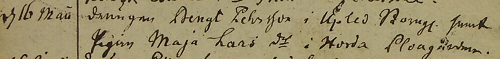 d 16 Maii drängen Bengt Pehrsson i Upled Borugg. samt
Pigan Maja Lars dr i Norda Ploagården.